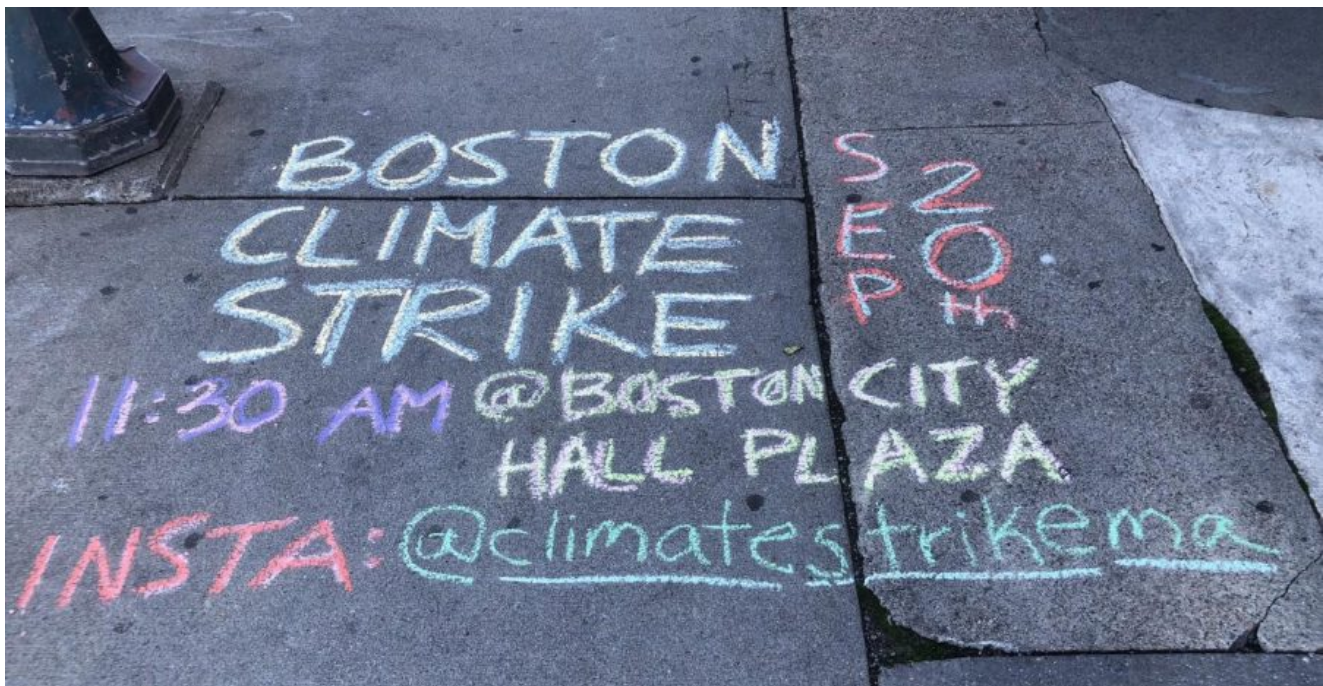 BOSTON
CLIMATE
STRIKE
SEP
20th
11:30 AM @BOSTON CITY
HALL PLAZA
INSTA: @climatestrikema